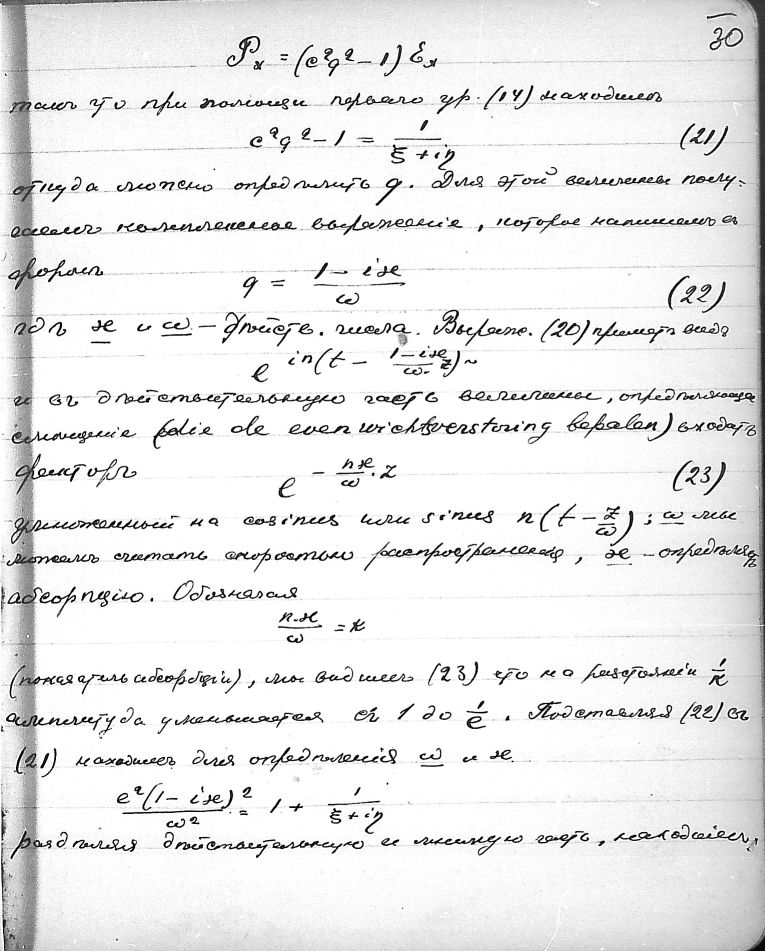 30
𝒫ₓ = (c²q² − 1) ℰₓ
такъ что при помощи перваго ур. (14) находимъ
c²q² − 1 = 1/(ξ + iη) (21)
откуда можно опредѣлить q. Для этой величины полу-
чаемъ комплексное выраженіе, которое напишемъ въ
формѣ
q = (1 − iϰ)/ω (22)
гдѣ ϰ и ω – дѣйств. числа. Выраж. (20) приметъ видъ
e^{in(t − (1−iϰ)/ω · z)}
и въ дѣйствительную часть величины, опредѣляющія
смѣщеніе (die de evenwichtsverstoring bepalen) входятъ
факторъ e^{− nϰ/ω · z} (23)
умноженный на cosinus или sinus n(t − z/ω); ω мы
можемъ считать скоростью распространенія, ϰ – опредѣляетъ
абсорпцію. Обозначая
n·ϰ/ω = k
(показатель абсорбціи), мы видимъ (23) что на разстояніи 1/k
амплитуда уменьшается съ 1 до 1/e. Подставляя (22) въ
(21) находимъ для опредѣленія ω и ϰ
c²(1 − iϰ)²/ω² = 1 + 1/(ξ + iη)
раздѣляя дѣйствительную и мнимую часть, находимъ: